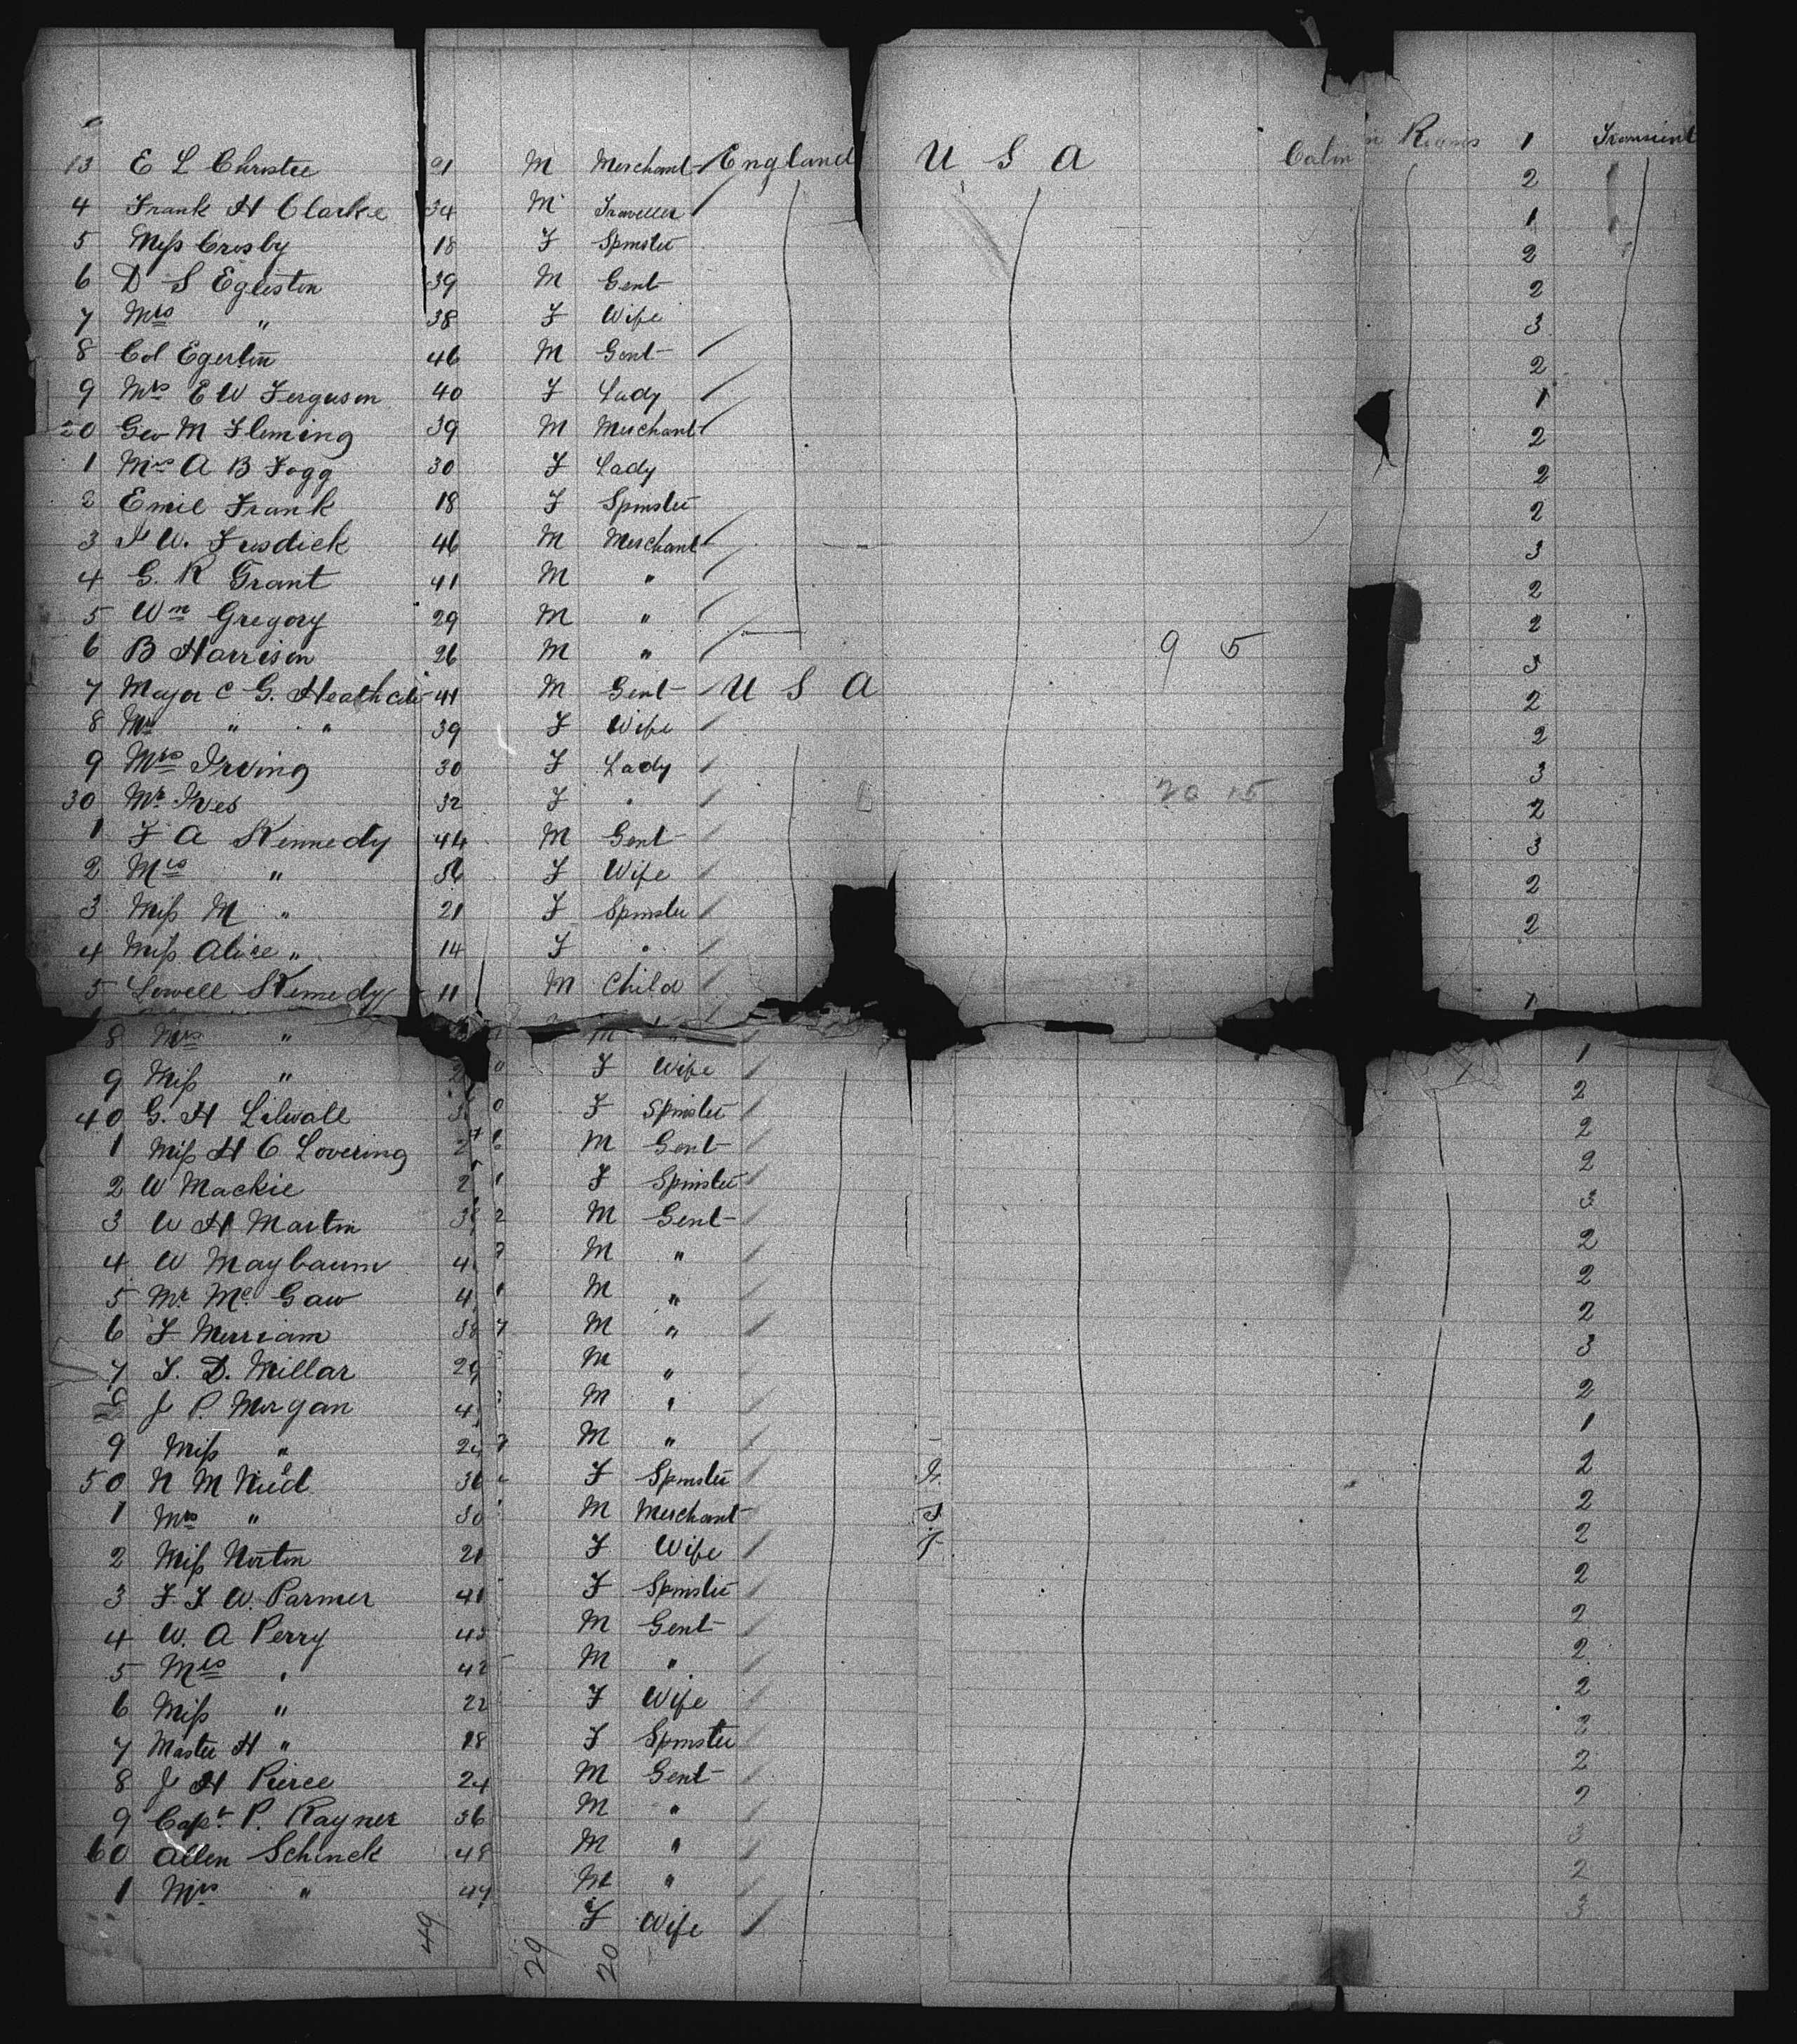 13 E L Christie 21 M Merchant England U S A Cabin Rooms 1 Transient
4 Frank H Clarke 34 M Traveller 2
5 Miss Crosby 18 F Spinster 1
6 D S Egleston 39 M Gent 2
7 Mrs " 38 F Wife 2
8 Col Egerton 46 M Gent 3
9 Mrs E W Ferguson 40 F Lady 2
20 Geo M Fleming 39 M Merchant 1
1 Mrs A B Fogg 30 F Lady 2
2 Emil Frank 18 F Spinster 2
3 W. Fosdick 46 M Merchant 2
4 G. R Grant 41 M " 3
5 Wm Gregory 29 M " 2
6 B Harrison 26 M " 9 5 2
7 Major C G. Heathcote 41 M Gent U S A 3
8 Mrs " " 39 F Wife 2
9 Mrs Irving 30 F Lady 2
30 Mr Ives 32 F " 20 15 3
1 F A Kennedy 44 M Gent 2
2 Mrs " F Wife 3
3 Miss M " 21 F Spinster 2
4 Miss Alice " 14 F " 2
5 Lowell Kennedy 11 M Child
1
8 Mrs " M "
9 Miss " F Wife 1
40 G. H Lilwall F Spinster 2
1 Miss H C Lovering M Gent 2
2 W Mackie F Spinster 2
3 W H Martin M Gent 3
4 W Maybaum M " 2
5 Mr Mc Gaw M " 2
6 F Merriam 38 M " 2
7 T. D. Millar M " 3
8 J P. Morgan M " 2
9 Miss " 24 M " 1
50 N M Nied 36 F Spinster 2
1 Mrs " 30 M Merchant 2
2 Miss Norton 21 F Wife 2
3 F. F. W. Parmer 41 F Spinster 2
4 W. A Perry 43 M Gent 2
5 Mrs " 42 M " 2
6 Miss " 22 F Wife 2
7 Master H " 18 F Spinster 2
8 J H Pierce 24 M Gent 2
9 Capt. P. Rayner 36 M " 2
60 Allen Schenck 48 M " 3
1 Mrs " 44 M " 2
F Wife 3
49 29 20